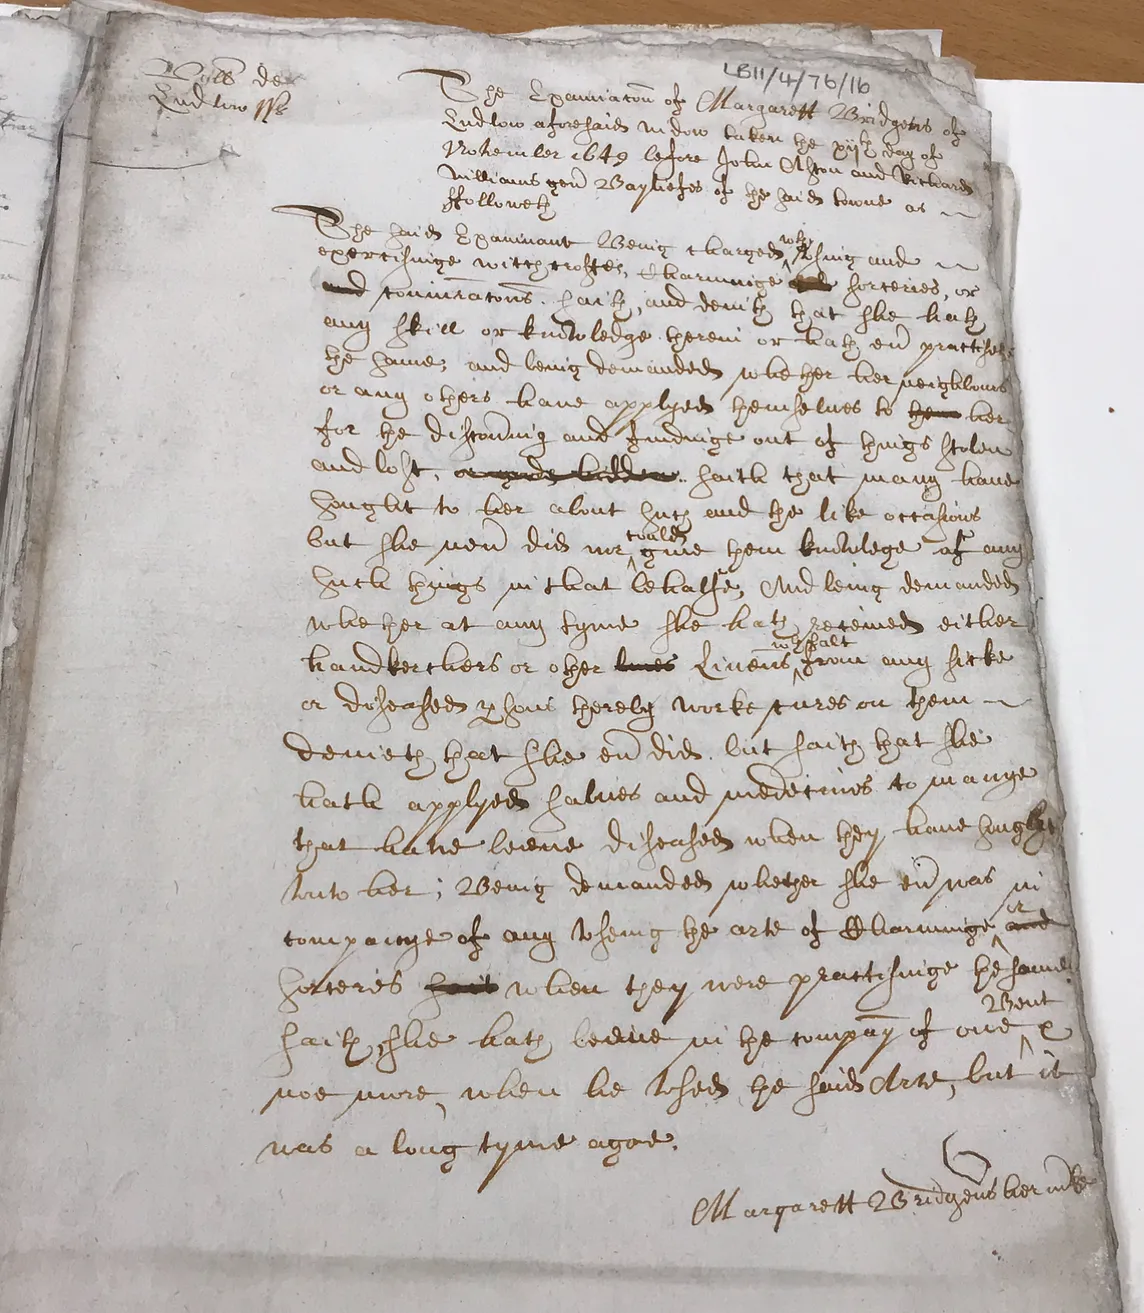 LB11/4/76/16
Vill de
Ludlow ss
The Examinacon of Margarett Bridgens of
Ludlow aforesaid widow taken the day of
November 1649 before John Aston and Richard
Williams gen Bayliefes of the said towne as
Followeth
The said Examinant Being charged wth vsing and
exercisinge witchcraftes, Charminge and sorceries, or
and coniuracons. saith, and denieth that she hath
any skill or knowledge therein or hath eu practised
the same, and being demanded whether her neighbours
or any others haue applyed themselues to them her
for the discouering and findinge out of things stolen
and lost, or goods hidden. saith that many haue
sought to her about such and the like occasions
but she neu did nor could giue them knowlege of any
such things in that behalfe, And being demanded
whether at any tyme she hath receiued either
handkerchers or other lines Linens wth salt from any sicke
or diseased psons thereby worke cures on them
denieth that she eu did. but saith that she
hath applyed salues and medecines to manye
that haue beene diseased when they haue sought
vnto her; Being demanded whether she eu was in
companye of any vseing the arte of Charminge or and
sorceries when they were practisinge the same
saith she hath beene in the company of one Bent &
noe more, when he vsed the said Arte, but it
was a long tyme agoe.
Margarett Bridgens her mke